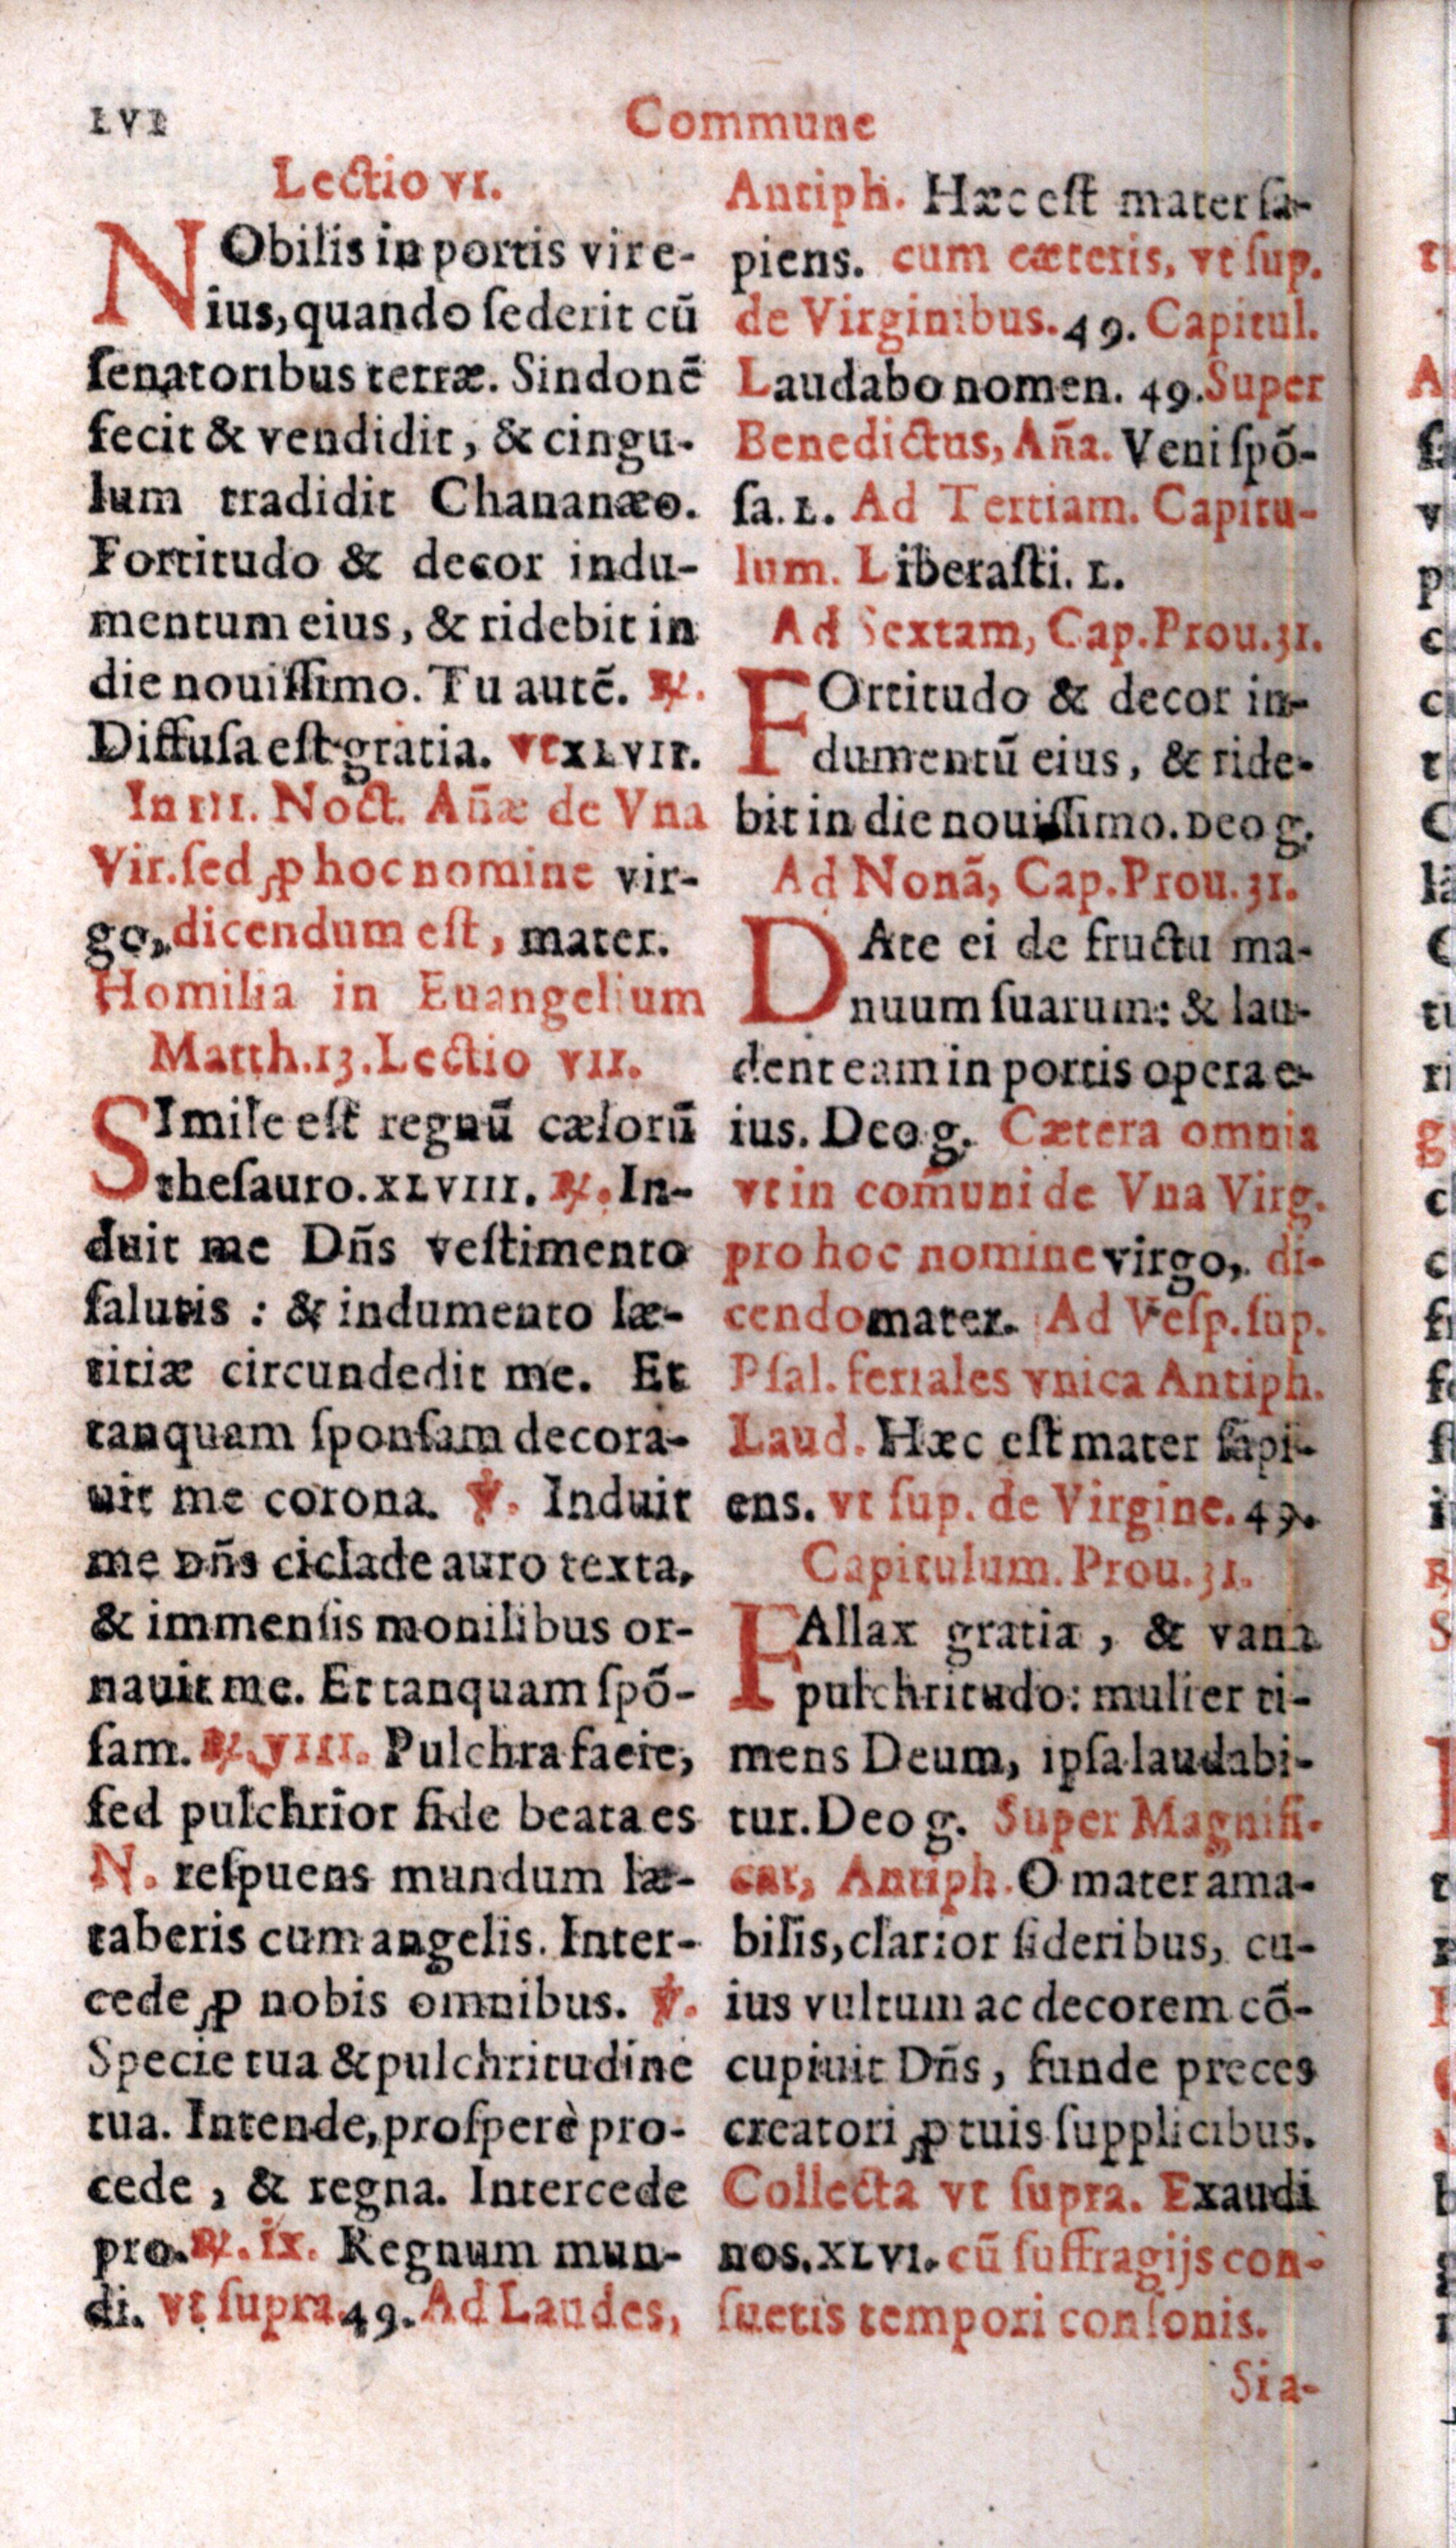 LVI
Commune
Lectio vi.
NObilis in portis vir e-
ius, quando ſederit cū
ſenatoribus terræ. Sindonē
fecit & vendidit, & cingu-
lum tradidit Chananæo.
Fortitudo & decor indu-
mentum eius, & ridebit in
die nouiſſimo. Tu autē. ℟.
Diffuſa eſt gratia. vt XLVII.
In III. Noct. Añæ de Vna
Vir. ſed ꝓ hoc nomine vir-
go, dicendum eſt, mater.
Homilia in Euangelium
Matth. 13. Lectio VII.
SImile eſt regnū cælorū
theſauro. XLVIII. ℟. In-
duit me Dñs veſtimento
ſalutis : & indumento læ-
titiæ circundedit me. Et
tanquam ſponſam decora-
uit me corona. ℣. Induit
me Dñs ciclade auro texta,
& immenſis monilibus or-
nauit me. Et tanquam ſpō-
ſam. ℟. VIII. Pulchra facie,
ſed pulchrior fide beata es
N. reſpuens mundum læ-
taberis cum angelis. Inter-
cede ꝓ nobis omnibus. ℣.
Specie tua & pulchritudine
tua. Intende, proſperè pro-
cede, & regna. Intercede
pro. ℟. IX. Regnum mun-
di. vt ſupra 49. Ad Laudes,
Antiph. Hæc eſt mater ſa-
piens. cum cæteris, vt ſup.
de Virginibus. 49. Capitul.
Laudabo nomen. 49. Super
Benedictus, Aña. Veni ſpō-
ſa. L. Ad Tertiam. Capitu-
lum. Liberaſti. L.
Ad Sextam, Cap. Prou. 31.
FOrtitudo & decor in-
dumentū eius, & ride-
bit in die nouiſſimo. Deo g.
Ad Nonā, Cap. Prou. 31.
DAte ei de fructu ma-
nuum ſuarum: & lau-
dent eam in portis opera e-
ius. Deo g. Cætera omnia
vt in com̄uni de Vna Virg.
pro hoc nomine virgo, di-
cendo mater. Ad Veſp. ſup.
Pſal. feriales vnica Antiph.
Laud. Hæc eſt mater ſapi-
ens. vt ſup. de Virgine. 49.
Capitulum. Prou. 31.
FAllax gratia, & vana
pulchritudo: mulier ti-
mens Deum, ipſa laudabi-
tur. Deo g. Super Magnifi-
cat, Antiph. O mater ama-
bilis, clarior ſideribus, cu-
ius vultum ac decorem cō-
cupiuit Dñs, funde preces
creatori ꝓ tuis ſupplicibus.
Collecta vt ſupra. Exaudi
nos. XLVI. cū ſuffragijs con-
ſuetis tempori conſonis.
Si a-